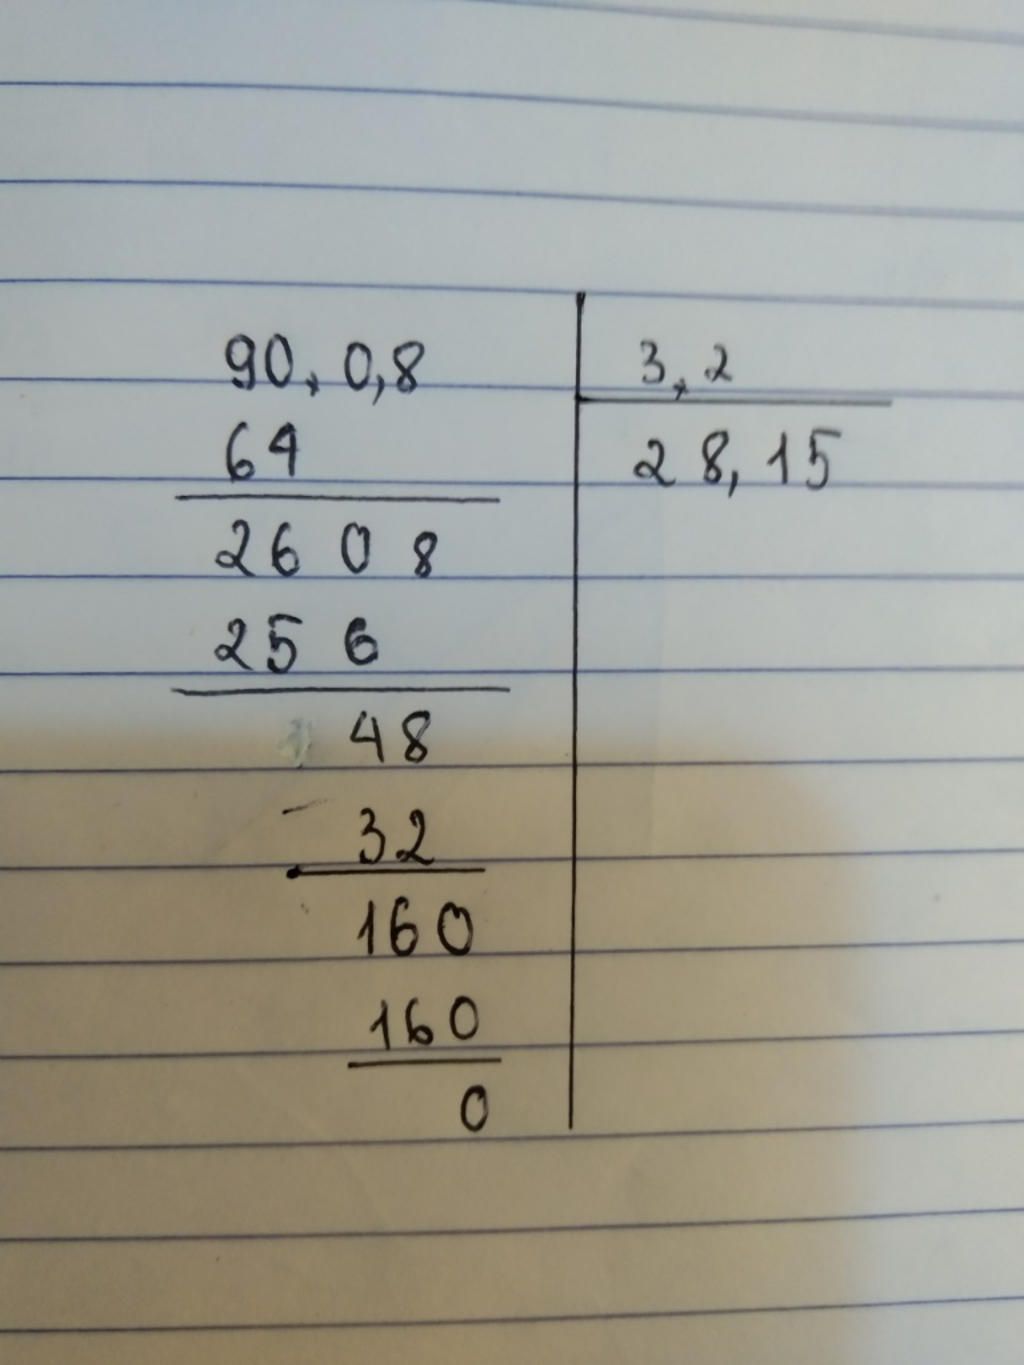 90,0,8 3,2
64 28,15
2608
256
48
- 32
160
160
0